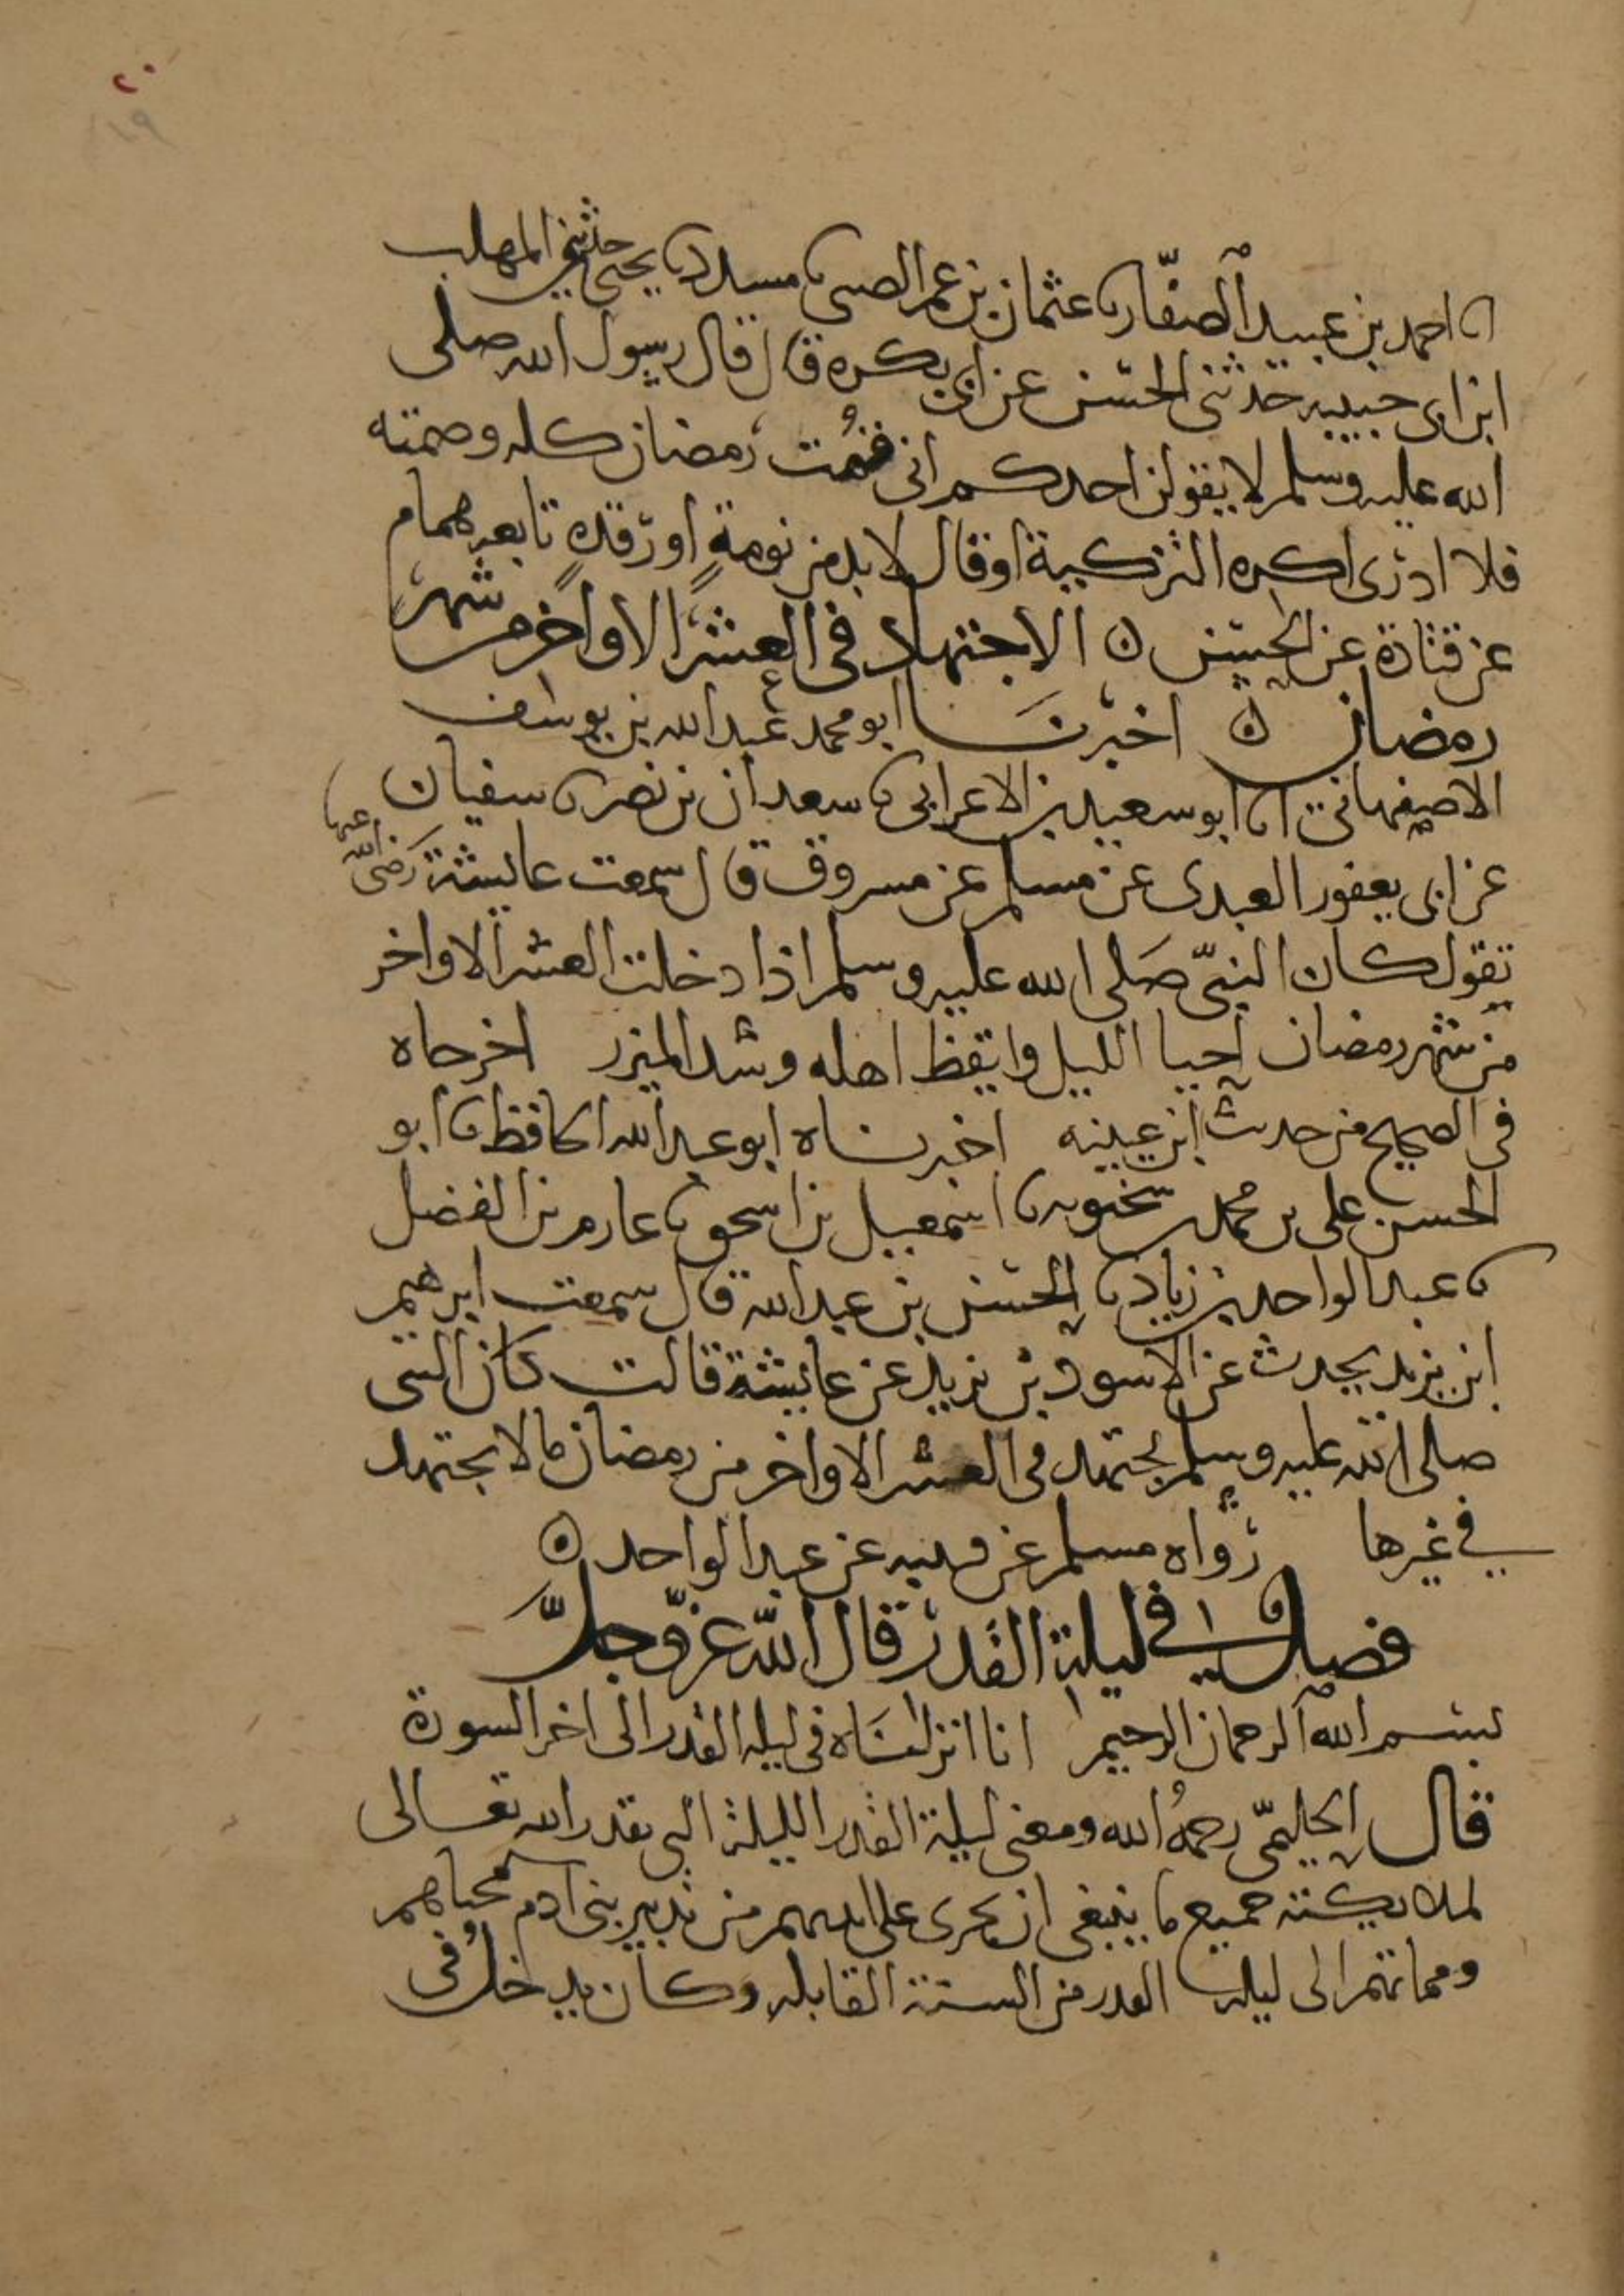 ٢٠
١٩
انا احمد بن عبيد الصفّار نا عثمان بن عمر الضبي نا مسدد نا يحيى حدثني المهلب
ابن ابى حبيبه حدثنى الحسن عن ابى بكره قال قال رسول الله صلى
الله عليه وسلم لا يقولن احدكم انى قمت رمضان كله وصمته
فلا ادرى اكره التزكية او قال لا بد من نومةٍ او رقدهٍ تابعه همام
عن قتادة عن الحسن ه الاجتهاد فى العشر الاواخر من شهر
رمضان ه اخبرنا ابو محمد عبد الله بن يوسف
الاصفهانى انا ابو سعيد بن الاعرابى نا سعدان بن نصر نا سفيان
عن ابى يعفور العبدى عن مسلم عن مسروق قال سمعت عايشة رضى الله عنها
تقول كان النبىّ صلى الله عليه وسلم اذا دخلت العشر الاواخر
من شهر رمضان احيا الليل وايقظ اهله وشد الميزر اخرجاه
فى الصحيح من حديث ابن عيينه اخبرناه ابو عبد الله الحافظ نا ابو
الحسن على بن محمد بن سختويه نا اسمعيل بن اسحق نا عارم بن الفضل
نا عبد الواحد بن زياد نا الحسن بن عبيد الله قال سمعت ابرهيم
ابن يزيد يحدث عن الاسود بن يزيد عن عايشة قالت كان النبى
صلى الله عليه وسلم يجتهد فى العشر الاواخر من رمضان ما لا يجتهد
في غيرها رواه مسلم عن قتيبه عن عبد الواحد ه
فصل في ليلة القدر قال الله عزّ وجلّ
بسم الله الرحمان الرحيم انا انزلناه فى ليلة القدر الى اخر السورة
قال الحليمىّ رحمهُ الله ومعنى ليلة القدر الليلة التى يقدر الله تعالى
لملايكته جميع ما ينبغى ان يجرى على ايديهم من تدبير بنى ادم محياهم
ومماتهم الى ليلة القدر من السنة القابله وكان يدخلُ فى